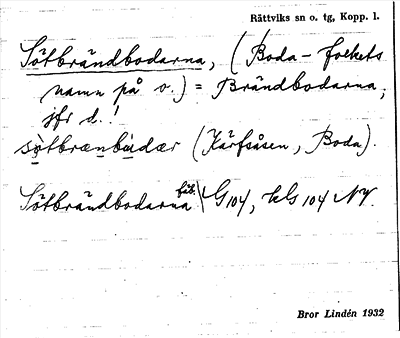 Rättviks sn o. tg, Kopp. l.
Sötbrändbodarna, (Boda-folkets
namn på o.) = Brändbodarna,
jfr d.!
sötbrænbudær (Kärfsåsen, Boda).
Sötbrändbodarna fäb. G 104, kG 104 NV.
Bror Lindén 1932